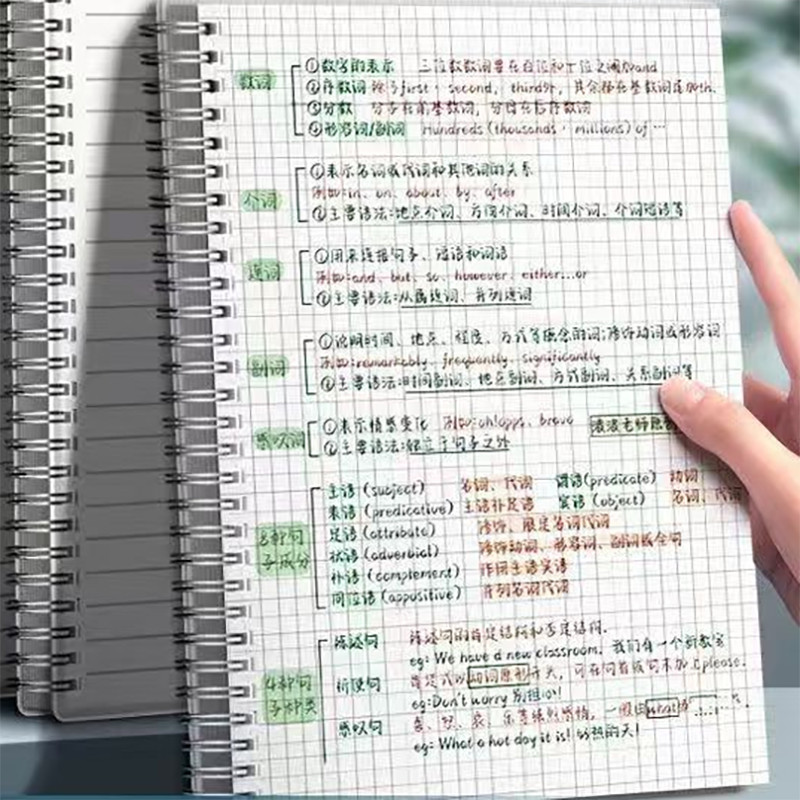 数词
①数字的表示 三位数数词要在百位和十位之间加and
②序数词 除了first, second, third外, 其余都在基数词后加th.
③分数 分子在前基数词, 分母在后序数词
④形容词/副词 Hundreds (thousands, millions) of …
介词
①表示名词或代词和其他词的关系
例如:in、on、about、by、after
②主要语法:地点介词、方向介词、时间介词、介词短语等
连词
①用来连接句子、短语和词语
例如:and、but、so、however、either...or
②主要语法:从属连词、并列连词
副词
①说明时间、地点、程度、方式等概念的词;修饰动词或形容词
例如:remarkably、frequently、significantly
②主要语法:时间副词、地点副词、方式副词、关系副词等
感叹词
①表示情感变化 例如:oh、opps、bravo
②主要语法:独立于句子之外
老师原创
8种句子成分
主语 (subject) 名词、代词 谓语(predicate) 动词
表语 (predicative) 主语补足语 宾语 (object) 名词、代词
定语 (attribute) 修饰、限定名词代词
状语 (adverbial) 修饰动词、形容词、副词或全句
补语 (complement) 作用主语宾语
同位语 (appositive) 并列名词代词
4种句子种类
陈述句 陈述句的肯定结构和否定结构.
eg: We have a new classroom. 我们有一个新教室
祈使句 肯定式以动词原形开头, 可在句首或句末加上please.
eg:Don't worry 别担心!
感叹句 喜、怒、哀、乐等强烈感情, 一般由what或
eg: What a hot day it is! 好热的天!